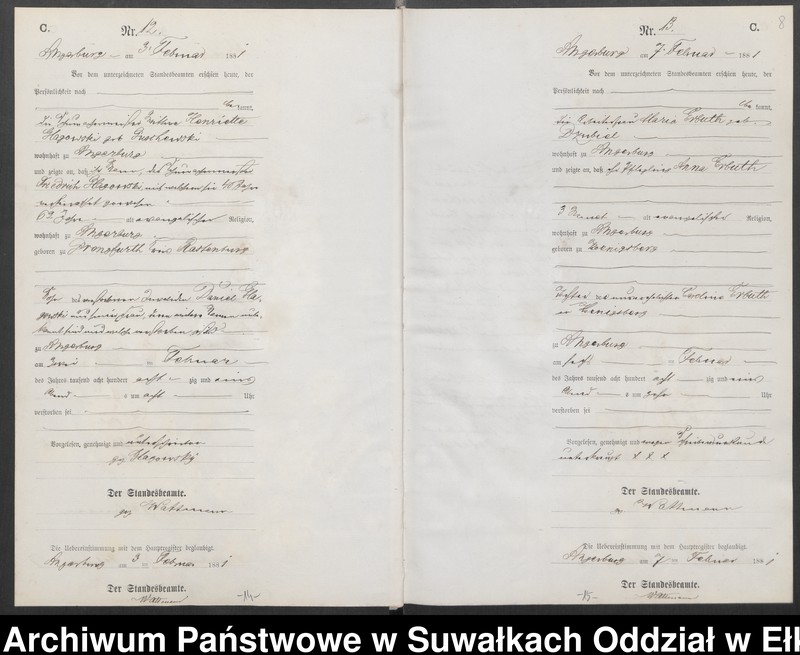 C.
Nr. 12.
Angerburg am 3. Februar 1881
Vor dem unterzeichneten Standesbeamten erschien heute, der
Persönlichkeit nach
kannt,
die Wittwe Henriette
geb.
wohnhaft zu Angerburg
und zeigte an, daß ihr Mann, der
Friedrich mit welchem sie 40 Jahre
verheirathet gewesen
62 Jahre alt evangelischer Religion,
wohnhaft zu Angerburg
geboren zu Kreis Rastenburg
Sohn des verstorbenen Invaliden Daniel
zu Angerburg
am zwei ten Februar
des Jahres tausend acht hundert acht zig und eins
Abends um acht Uhr
verstorben sei
Vorgelesen, genehmigt und unterschrieben
gez.
Der Standesbeamte.
gez. Wattmann
Die Uebereinstimmung mit dem Hauptregister beglaubigt.
Angerburg am 3. Februar 1881
Der Standesbeamte.
Wattmann
-14-
Nr. 13.
C.
8
Angerburg am 7. Februar 1881
Vor dem unterzeichneten Standesbeamten erschien heute, der
Persönlichkeit nach
kannt,
die Maria Erbuth geb.
wohnhaft zu Angerburg
und zeigte an, daß ihr Pflegling Anna Erbuth
3 Monat alt evangelischer Religion,
wohnhaft zu Angerburg
geboren zu Koenigsberg
Tochter der unverehelichten Caroline Erbuth
in Königsberg
zu Angerburg
am sechs ten Februar
des Jahres tausend acht hundert acht zig und eins
Abends um zehn Uhr
verstorben sei
Vorgelesen, genehmigt und wegen Schreibensunkunde
unterkreuzt x x x
Der Standesbeamte.
gez. Wattmann
Die Uebereinstimmung mit dem Hauptregister beglaubigt.
Angerburg am 7. Februar 1881
Der Standesbeamte.
Wattmann
-15-
Archiwum Państwowe w Suwałkach Oddział w Ełk